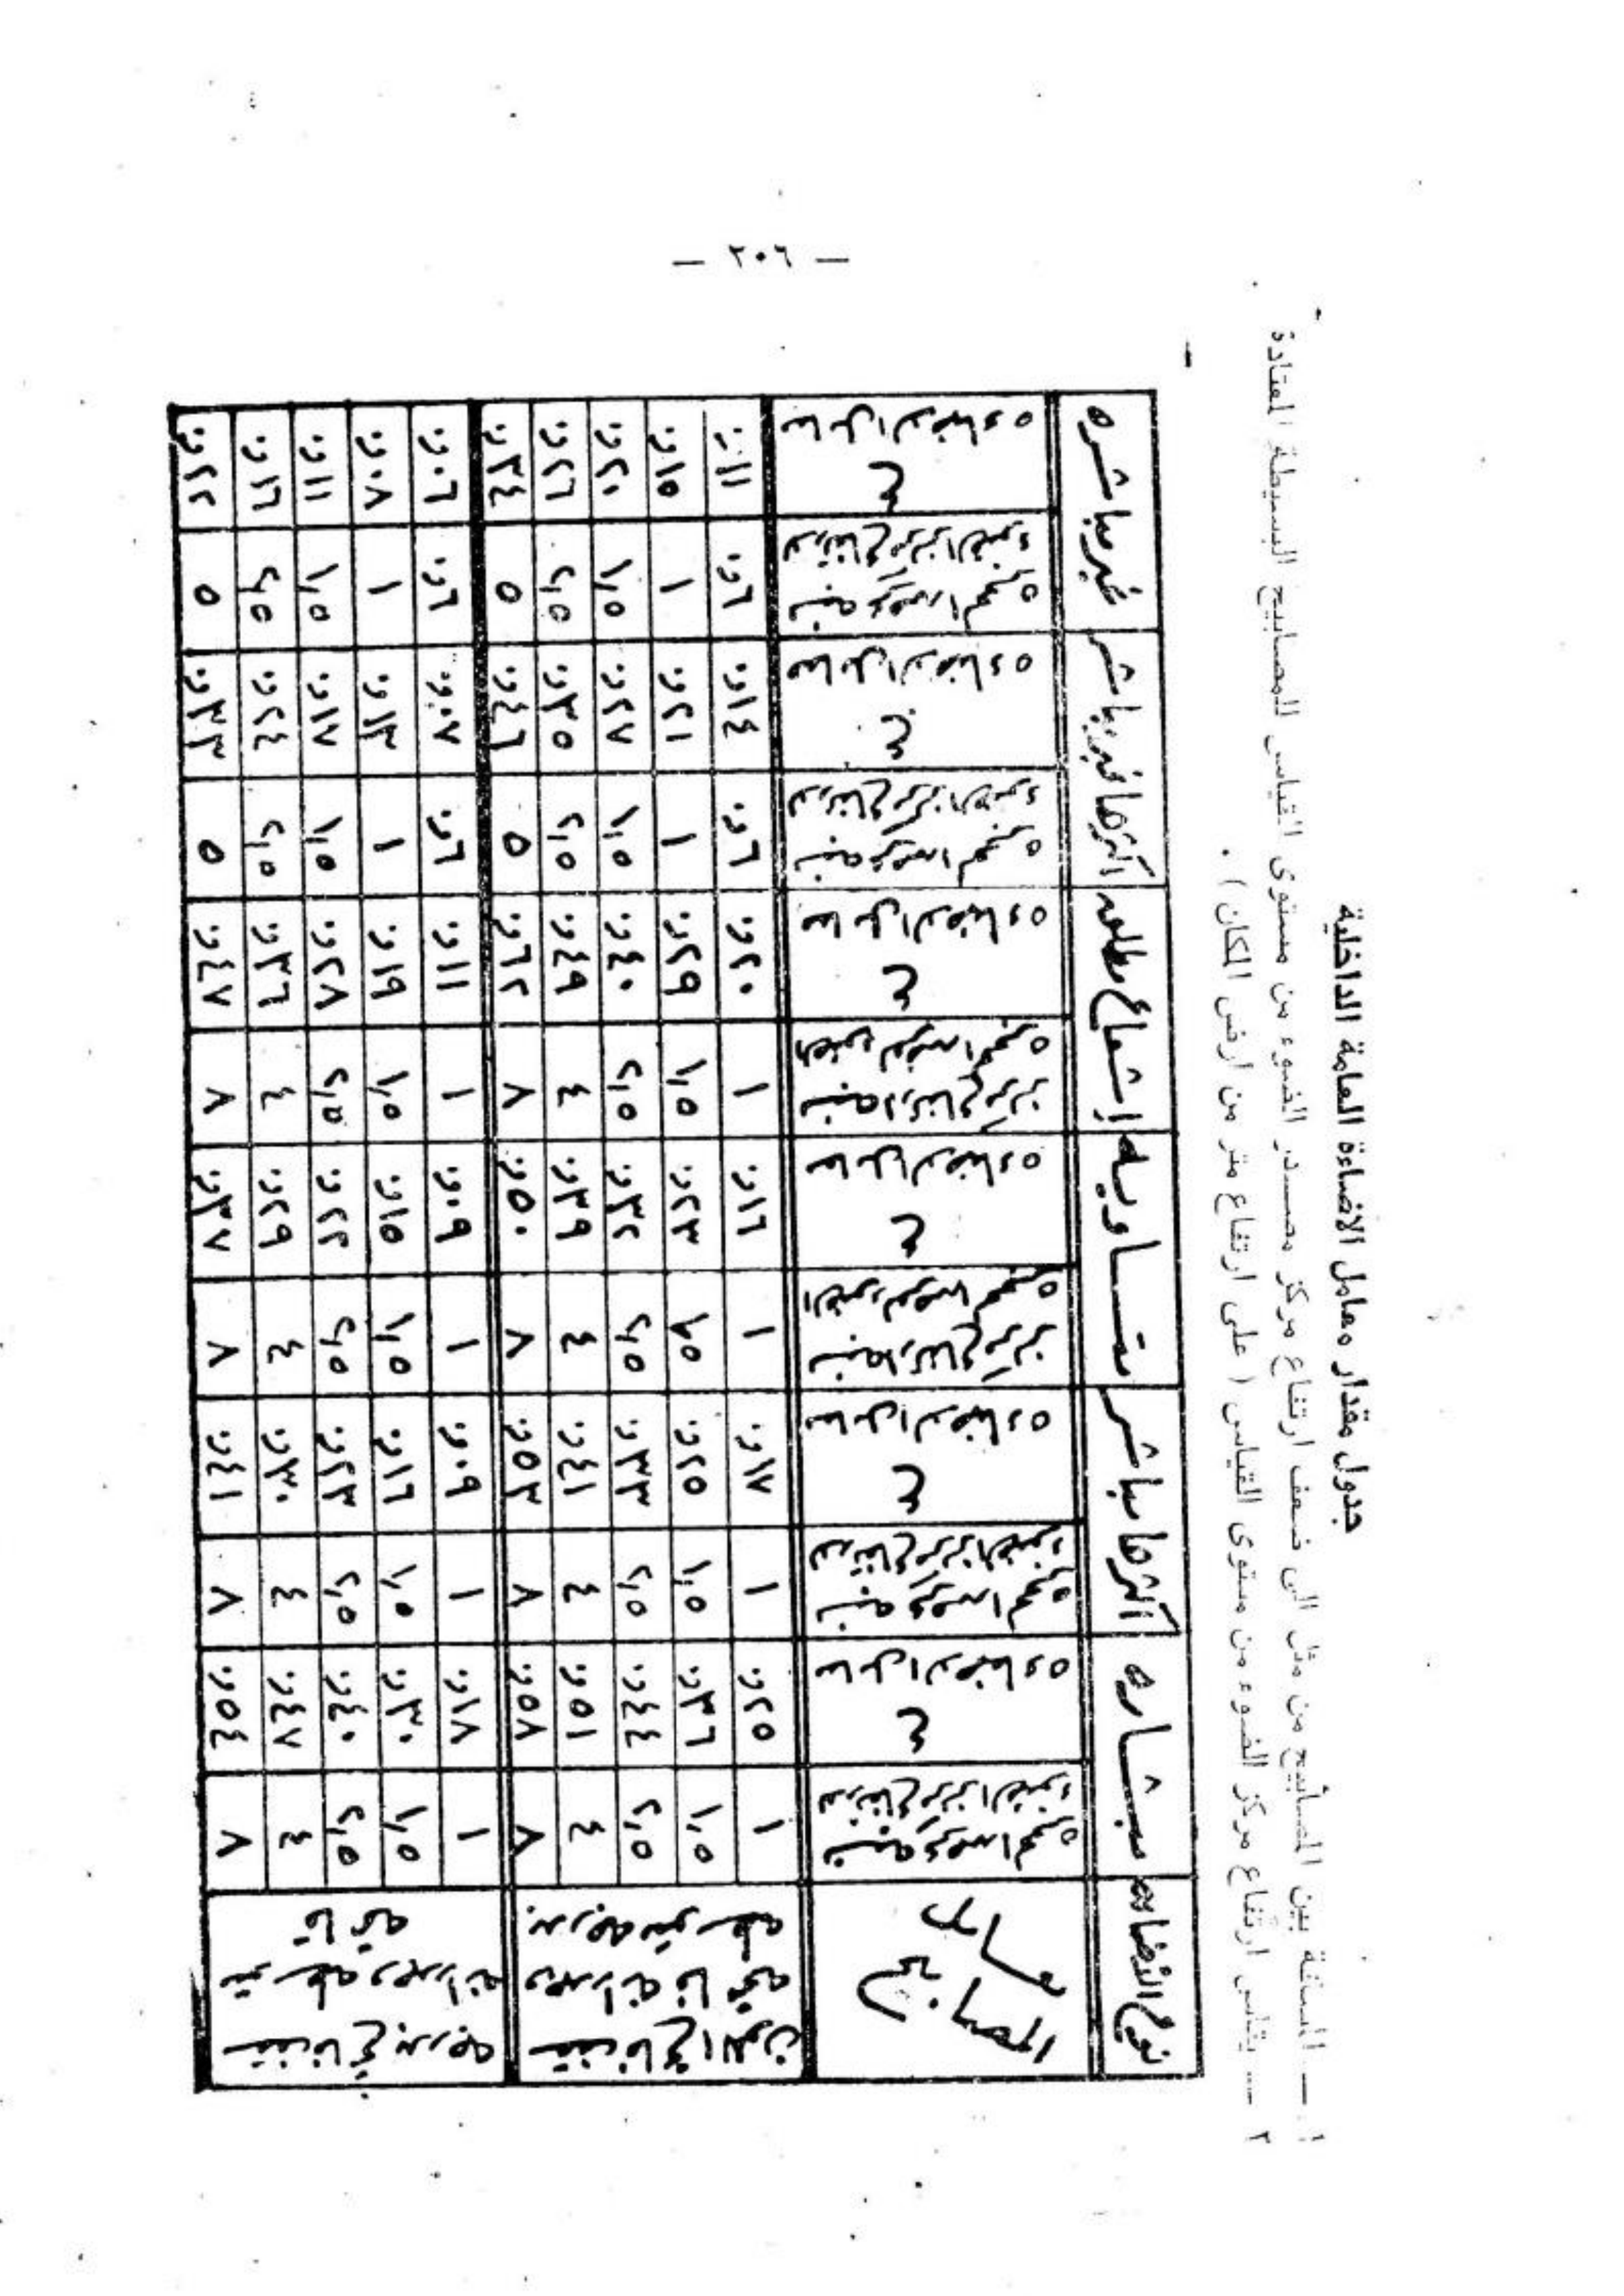 — ٢٠٦ —
جدول مقدار معامل الاضاءة العامة الداخلية
١ — المسافة بين المصابيح من مثل الى ضعف ارتفاع مركز مصدر الضوء من مستوى القياس للمصابيح البسيطة المعتادة
٢ — يقاس ارتفاع مركز الضوء من مستوى القياس ( على ارتفاع متر من ارض المكان ) .
نوع الاضاءه مباشره اكثرها مباشر متساويه اشعاع اكثرها غير مباشر غير مباشره
لون
نسبة عرض الحجره لارتفاع مركز الضوء
معامل الاضاءه ع
نسبة عرض الحجره لارتفاع مركز الضوء
معامل الاضاءه ع
نسبة ارتفاع مركز الضوء لعرض الحجره
معامل الاضاءه ع
نسبة ارتفاع مركز الضوء لعرض الحجره
معامل الاضاءه ع
نسبة عرض الحجره لارتفاع مركز الضوء
معامل الاضاءه ع
نسبة عرض الحجره لارتفاع مركز الضوء
معامل الاضاءه ع
سقف فاتح اللون
وجدرانه فاتحه
بدرجه متوسطه
١ ٢٥ر٠ ١ ١٧ر٠ ١ ١٦ر٠ ١ ٢٠ر٠ ٦ر٠ ١٤ر٠ ٦ر٠ ١١ر٠
١,٥ ٣٦ر٠ ١,٥ ٢٥ر٠ ١,٥ ٢٣ر٠ ١,٥ ٢٩ر٠ ١ ٢١ر٠ ١ ١٥ر٠
٢,٥ ٤٤ر٠ ٢,٥ ٣٣ر٠ ٢,٥ ٣٢ر٠ ٢,٥ ٤٠ر٠ ١,٥ ٢٧ر٠ ١,٥ ٢٠ر٠
٤ ٥١ر٠ ٤ ٤١ر٠ ٤ ٣٩ر٠ ٤ ٤٩ر٠ ٢,٥ ٣٥ر٠ ٢,٥ ٢٦ر٠
٨ ٥٨ر٠ ٨ ٥٣ر٠ ٨ ٥٠ر٠ ٨ ٦٢ر٠ ٥ ٤٦ر٠ ٥ ٣٤ر٠
سقف فاتح بدرجه
متوسطه وجدرانه
قاتمه
١ ١٨ر٠ ١ ٠٩ر٠ ١ ٠٩ر٠ ١ ١١ر٠ ٦ر٠ ٠٧ر٠ ٦ر٠ ٠٦ر٠
١,٥ ٣٠ر٠ ١,٥ ١٦ر٠ ١,٥ ١٥ر٠ ١,٥ ١٩ر٠ ١ ١٣ر٠ ١ ٠٨ر٠
٢,٥ ٤٠ر٠ ٢,٥ ٢٣ر٠ ٢,٥ ٢٢ر٠ ٢,٥ ٢٨ر٠ ١,٥ ١٧ر٠ ١,٥ ١١ر٠
٤ ٤٧ر٠ ٤ ٣٠ر٠ ٤ ٢٩ر٠ ٤ ٣٦ر٠ ٢,٥ ٢٤ر٠ ٢,٥ ١٦ر٠
٨ ٥٤ر٠ ٨ ٤١ر٠ ٨ ٣٧ر٠ ٨ ٤٧ر٠ ٥ ٣٣ر٠ ٥ ٢٢ر٠